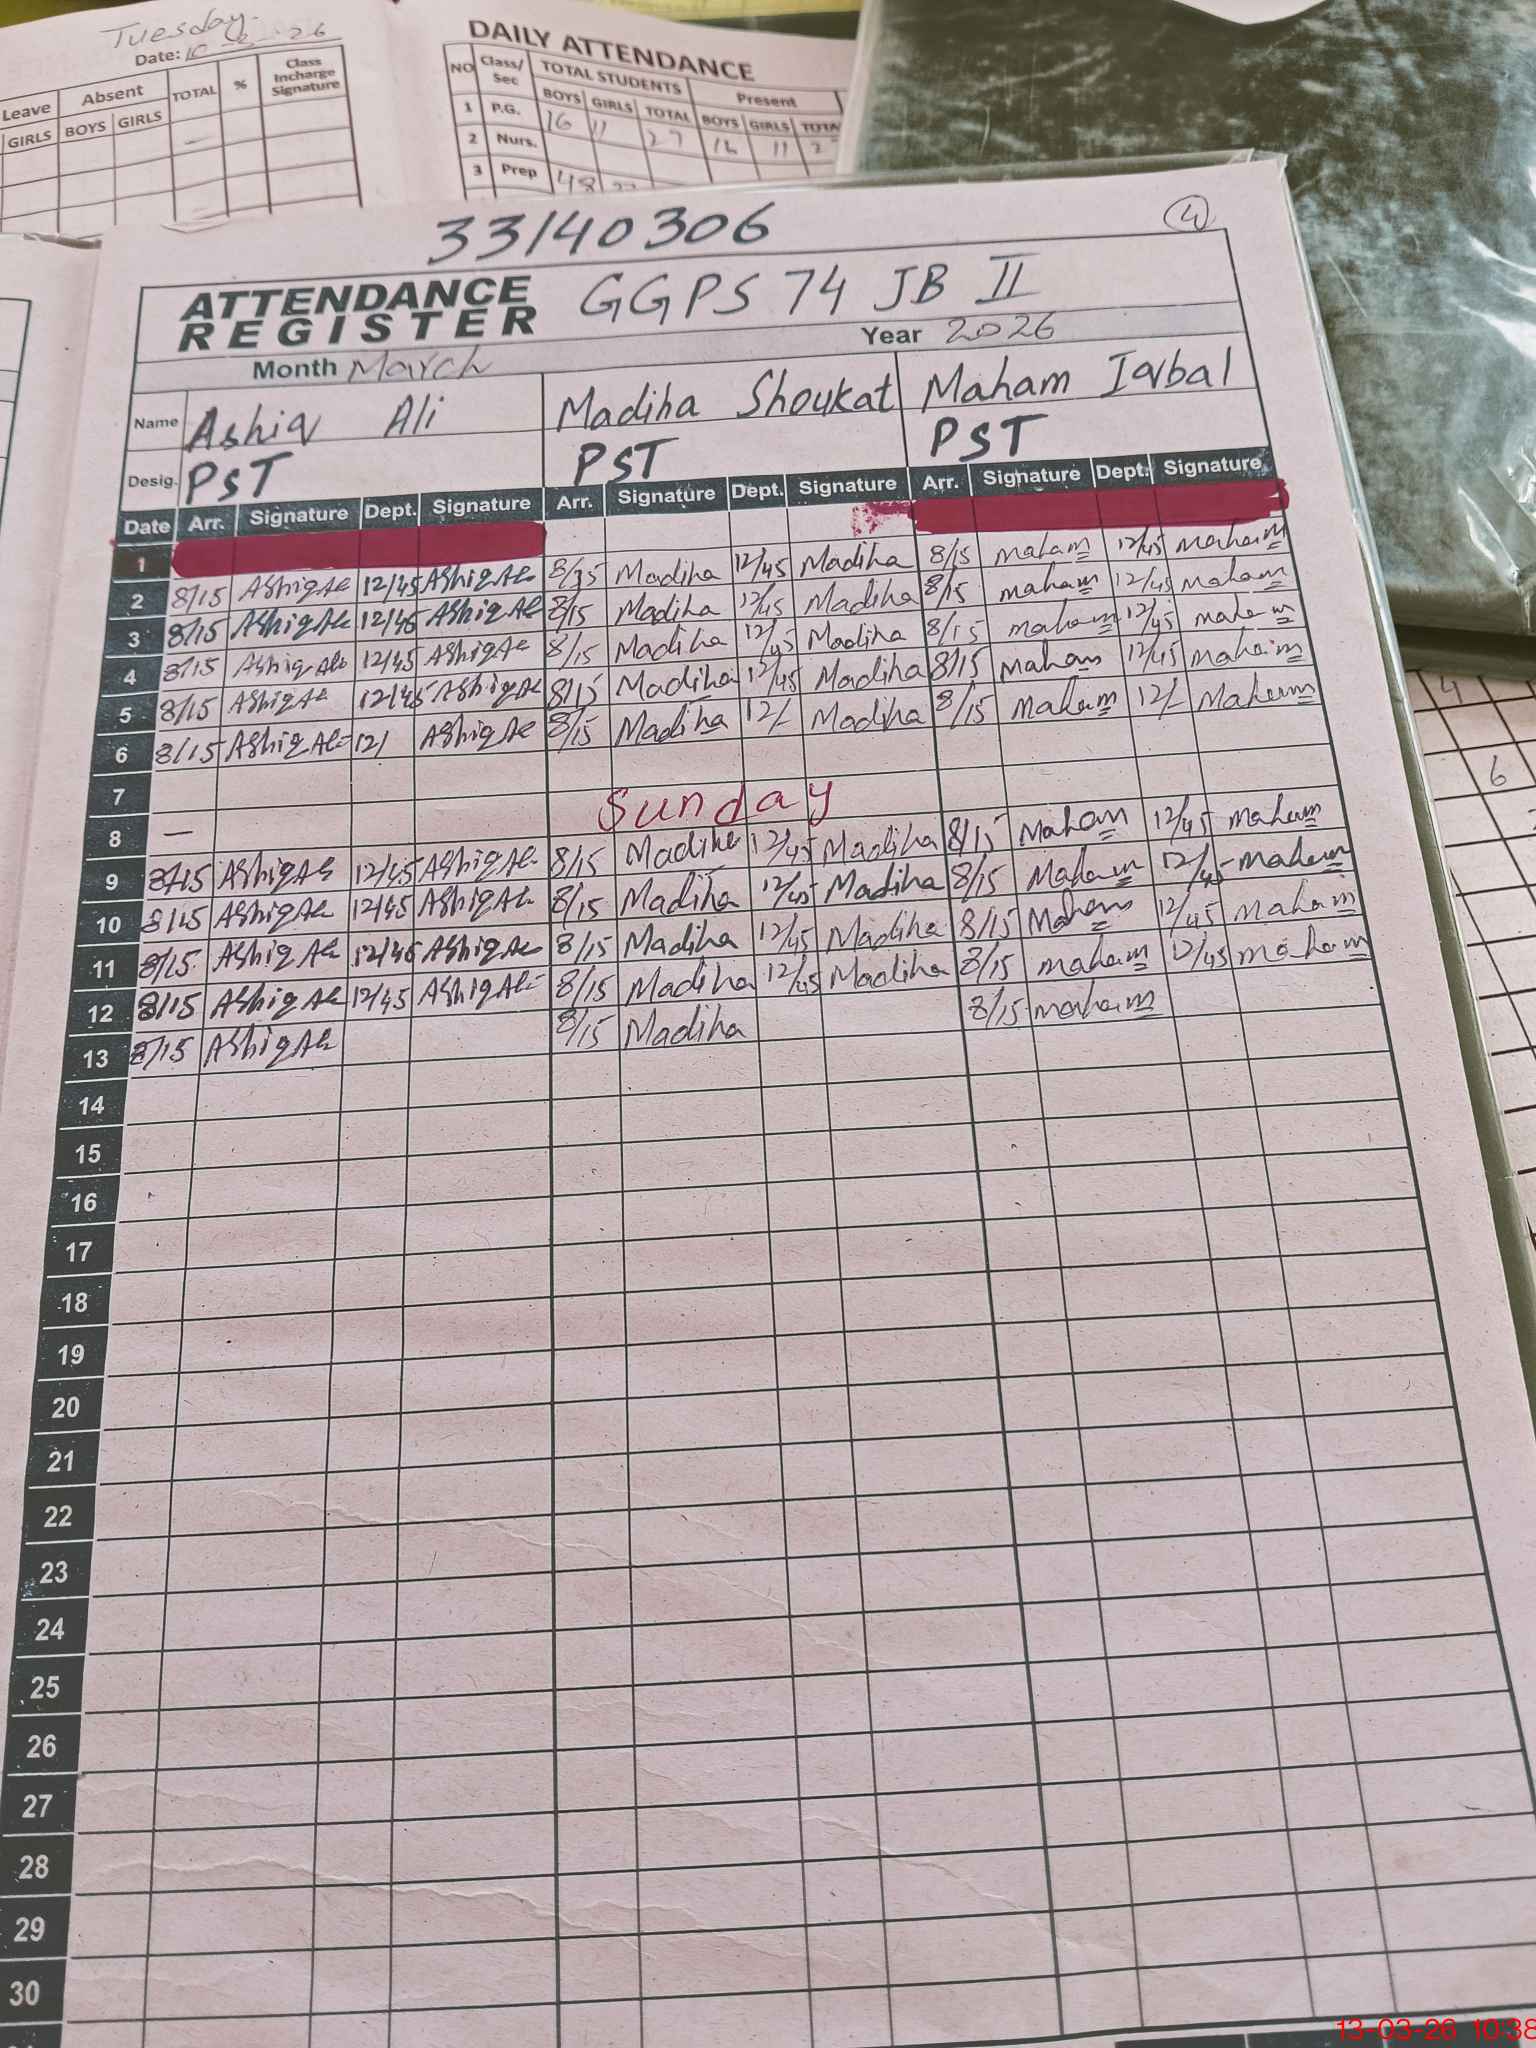 Tuesday
Date: 10
26
Leave Absent TOTAL % Class Incharge Signature
GIRLS BOYS GIRLS
DAILY ATTENDANCE
NO Class/ Sec TOTAL STUDENTS Present
BOYS GIRLS TOTAL BOYS GIRLS
1 P.G. 16 11 27 16 11
2 Nurs.
3 Prep 48
33140306
4
ATTENDANCE REGISTER GGPS 74 JB II
Month March Year 2026
Name Ashiq Ali Madiha Shoukat Maham Iqbal
Desig. PST PST PST
Date Arr. Signature Dept. Signature Arr. Signature Dept. Signature Arr. Signature Dept. Signature
1
2 8/15 AshiqAli 12/45 AshiqAli 8/15 Madiha 12/45 Madiha 8/15 maham 12/45 maham
3 8/15 AshiqAli 12/45 AshiqAli 8/15 Madiha 12/45 Madiha 8/15 maham 12/45 maham
4 8/15 AshiqAli 12/45 AshiqAli 8/15 Madiha 12/45 Madiha 8/15 maham 12/45 maham
5 8/15 AshiqAli 12/45 AshiqAli 8/15 Madiha 12/45 Madiha 8/15 Maham 12/45 maham
6 8/15 AshiqAli 12/ AshiqAli 8/15 Madiha 12/- Madiha 8/15 Maham 12/- Maham
7
8 — Sunday
9 8/15 AshiqAli 12/45 AshiqAli 8/15 Madiha 12/45 Madiha 8/15 Maham 12/45 maham
10 8/15 AshiqAli 12/45 AshiqAli 8/15 Madiha 12/45 Madiha 8/15 Maham 12/45 maham
11 8/15 AshiqAli 12/45 AshiqAli 8/15 Madiha 12/45 Madiha 8/15 Maham 12/45 maham
12 8/15 AshiqAli 12/45 AshiqAli 8/15 Madiha 12/45 Madiha 8/15 maham 12/45 maham
13 8/15 AshiqAli 8/15 Madiha 8/15 maham
14
15
16
17
18
19
20
21
22
23
24
25
26
27
28
29
30
4
6
13-03-26 10:38